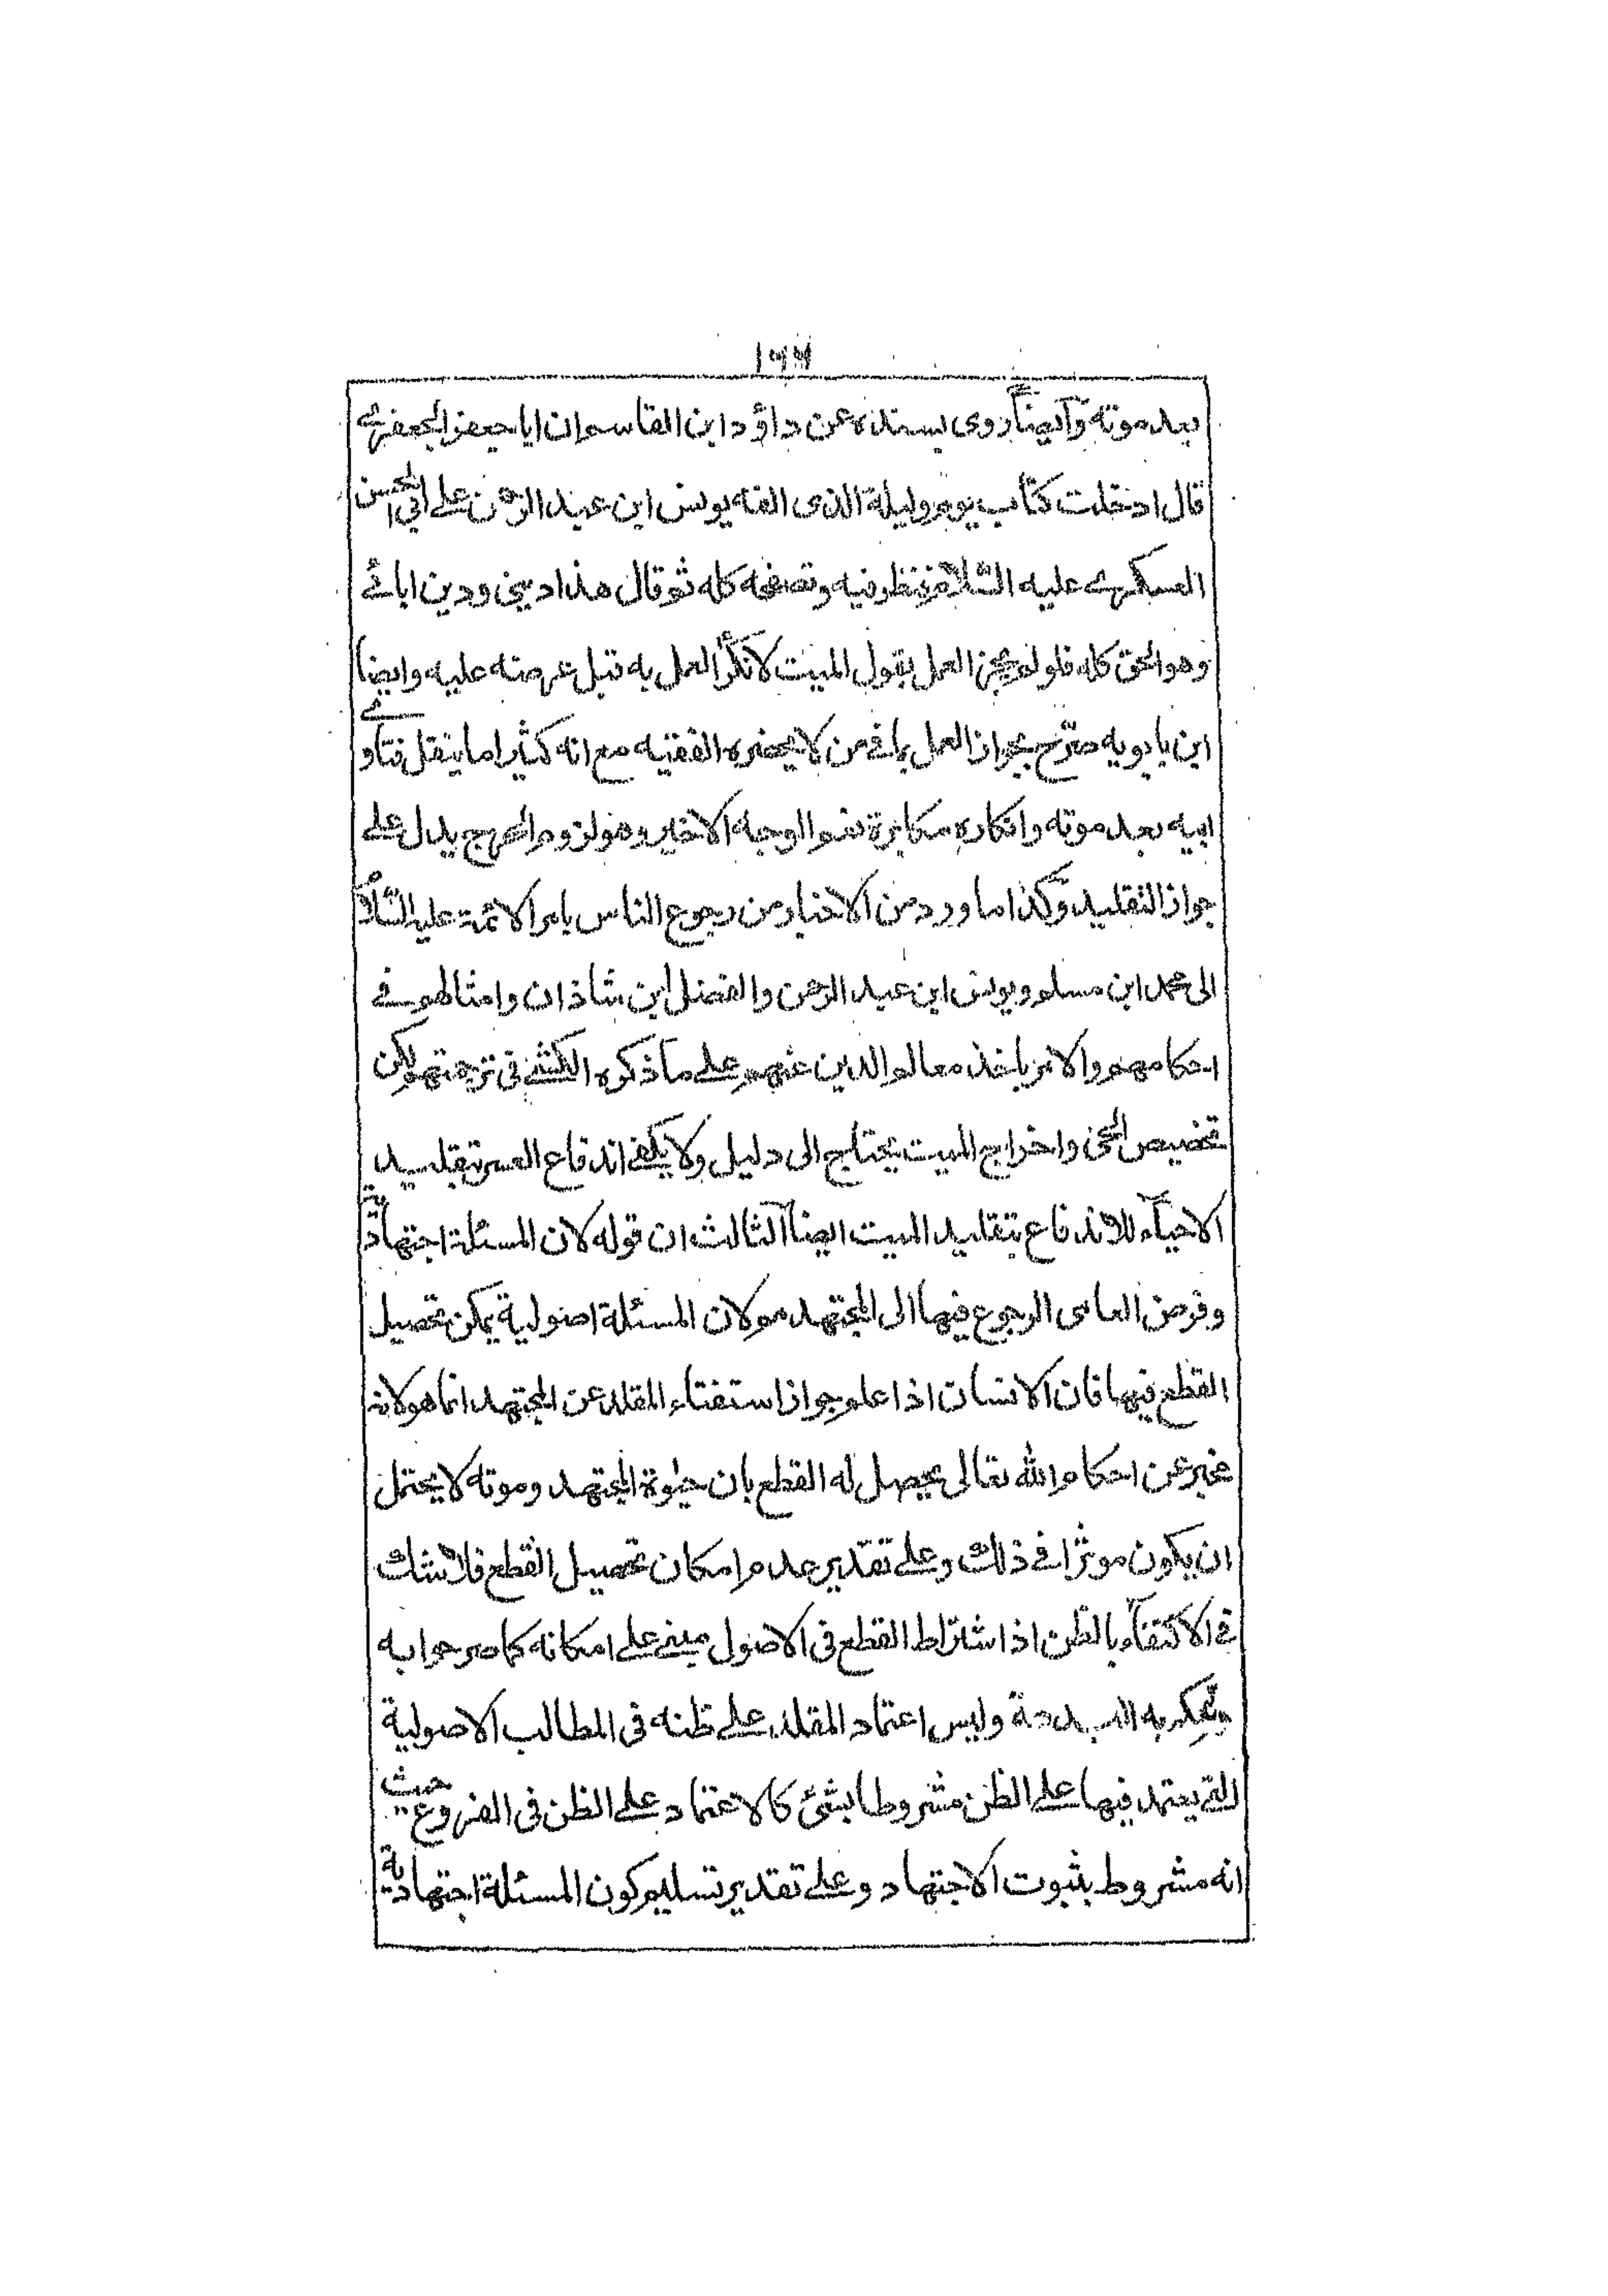 بعد موته وايضاً روى بسنده عن داؤد ابن القاسم ان ابا جعفر الجعفرے
قال ادخلت كتاب يوم وليلة الذى الفه يونس ابن عبد الرحمن علے ابى الحسن
العسكرے عليه السّلام فنظر فيه وتصفحه كله ثم قال هذا دينى ودين ابائے
وهو الحق كله فلو لم يجز العمل بقول الميت لانكر العمل به قبل عرضه عليه وايضاً
ابن بابويه صرّح بجواز العمل بما فے من لا يحضره الفقيه مع انه كثيرا ما ينقل فتاوے
ابيه بعد موته وانكاره مكابرة ثم الوجه الاخير وهو لزوم الحرج يدل علے
جواز التقليد وكذا ما ورد من الاخبار من رجوع الناس بامر الائمة عليه السّلام
الى محمد ابن مسلم ويونس ابن عبد الرحمن والفضل ابن شاذان وامثالهم فے
احكامهم والامر باخذ معالم الدين عنهم علے ما ذكره الكشے فى ترجمتهم ولكن
تخصيص الحى واخراج الميت يحتاج الى دليل ولا يكفے اندفاع العسر بتقليد
الاحيآء للاندفاع بتقليد الميت ايضاً الثالث ان قوله لان المسئلة اجتهادية
وفرض العامى الرجوع فيها الى المجتهد مم لان المسئلة اصولية يمكن تحصيل
القطع فيها فان الانسان اذا علم جواز استفتاء المقلد عن المجتهد انما هو لانه
مخبر عن احكام الله تعالى يحصل له القطع بان حيوة المجتهد وموته لا يحتمل
ان يكون موثرا فے ذلك وعلے تقدير عدم امكان تحصيل القطع فلا شك
فے الاكتفآء بالظن اذ اشتراط القطع فى الاصول مبنے علے امكانه كما صرحوا به
به وليس اعتماد المقلد علے ظنه فى المطالب الاصولية
التے يعتمد فيها علے الظن مشروطا بشئ كالاعتماد علے الظن فى الفروع حيث
انه مشروط بثبوت الاجتهاد وعلے تقدير تسليم كون المسئلة اجتهادية